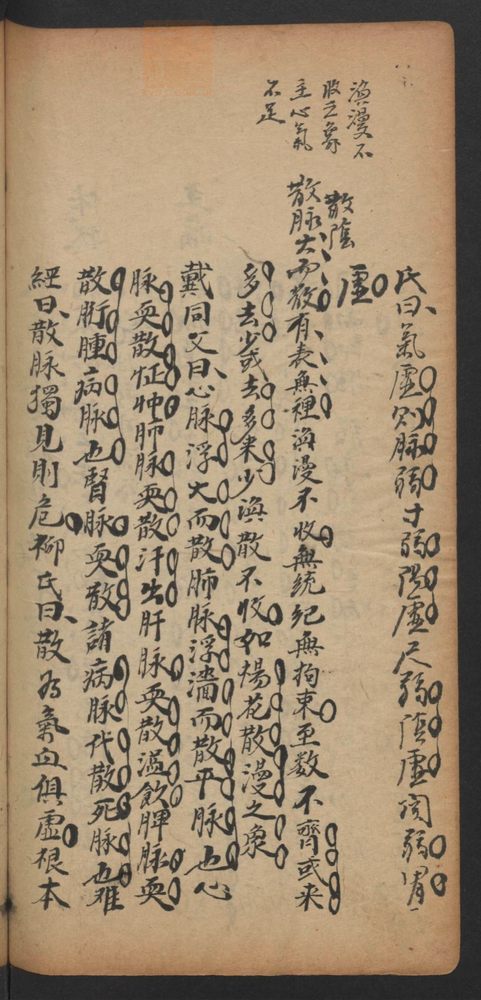 氏曰氣虛則脉弱寸弱陽虛尺弱陰虛関弱胃
虛
渙漫不
收之象
主心氣
不足
散陰
散脉大而散有表無裡渙漫不收無統紀無拘束至数不齊或来
多去少或去多来少渙散不收如楊花散漫之象
戴同父曰心脉浮大而散肺脉浮濇而散平脉也心
脉耎散怔忡肺脉耎散汗出肝脉耎散溢飲脾脉耎
散胻腫病脉也腎脉耎散諸病脉代散死脉也難
經曰散脉獨見則危柳氏曰散為氣血俱虛根本